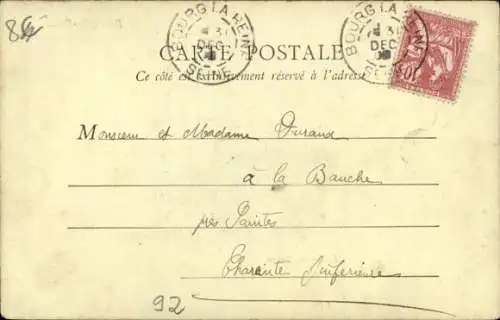 BOURG LA REINE
31
DEC
SEINE
BOURG LA REINE
31
DEC
CARTE POSTALE
Ce côté est exclusivement réservé à l'adresse
Monsieur et Madame Durand
à la Bauche
près Saintes
Charente Inférieure
92